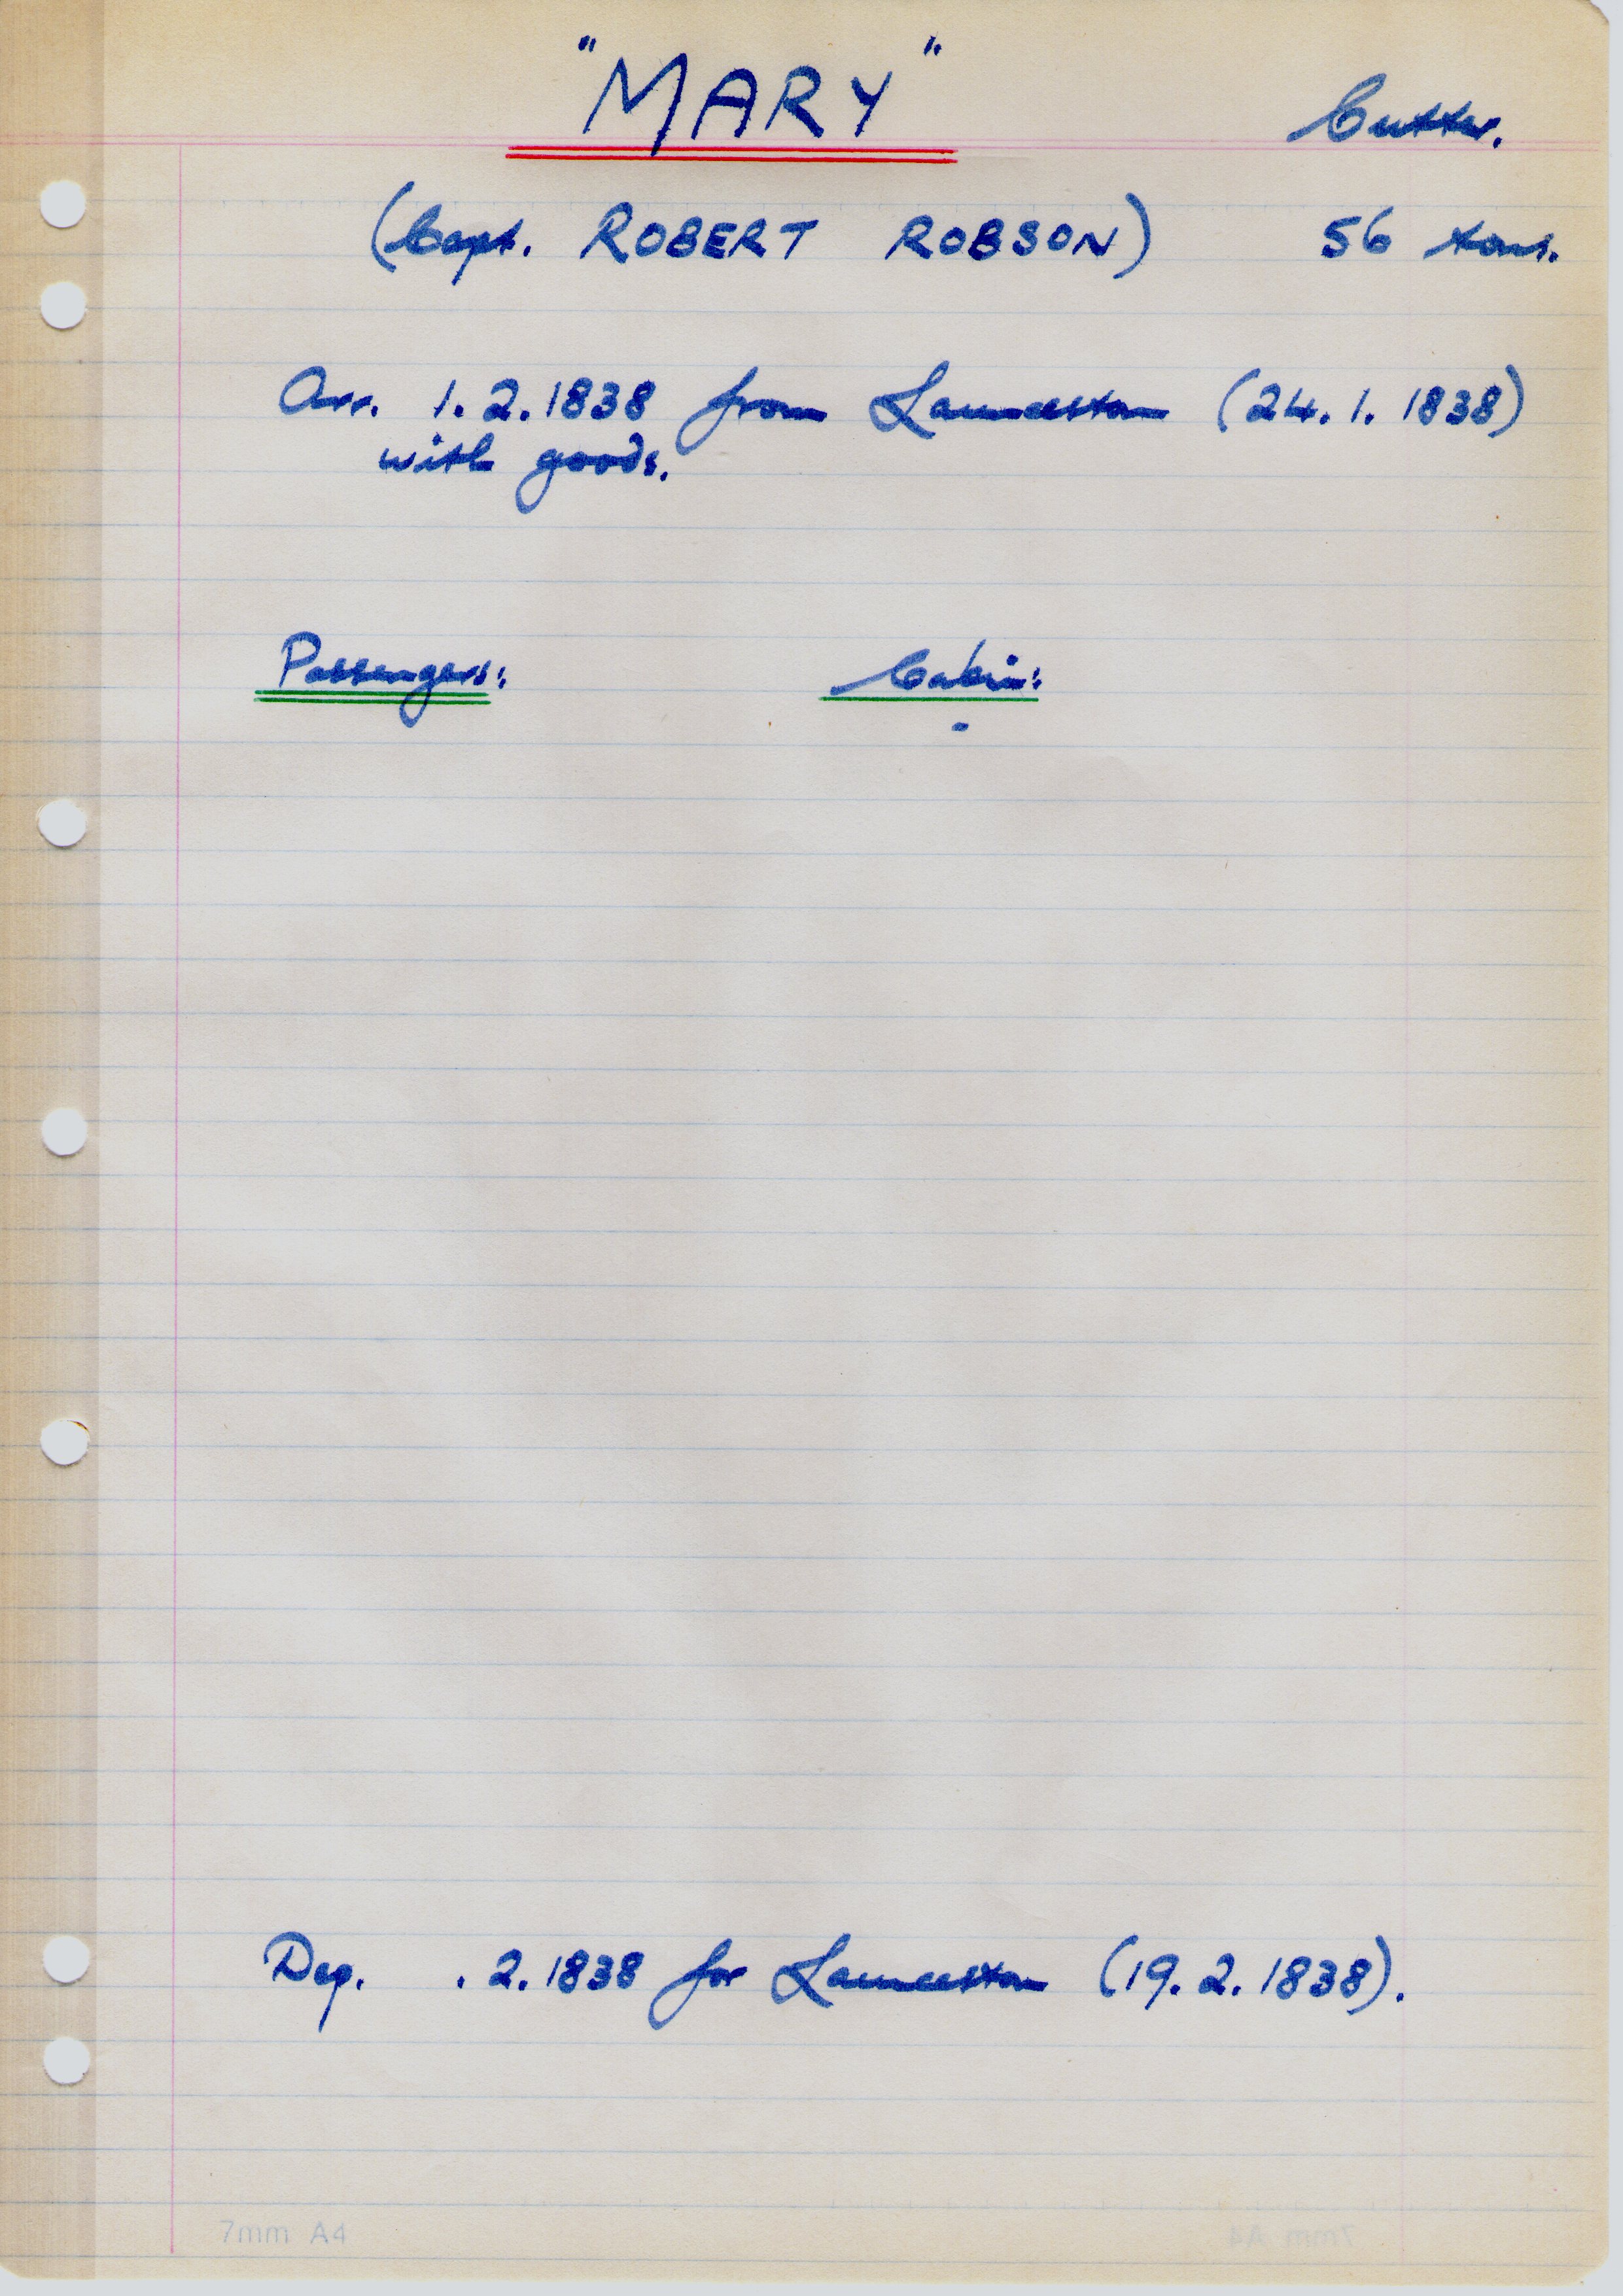 "MARY" Cutter.
(Capt. ROBERT ROBSON) 56 tons.
Arr. 1.2.1838 from Launceston (24.1.1838)
with goods.
Passengers: Cabin:
-
Dep. .2.1838 for Launceston (19.2.1838).
7mm A4